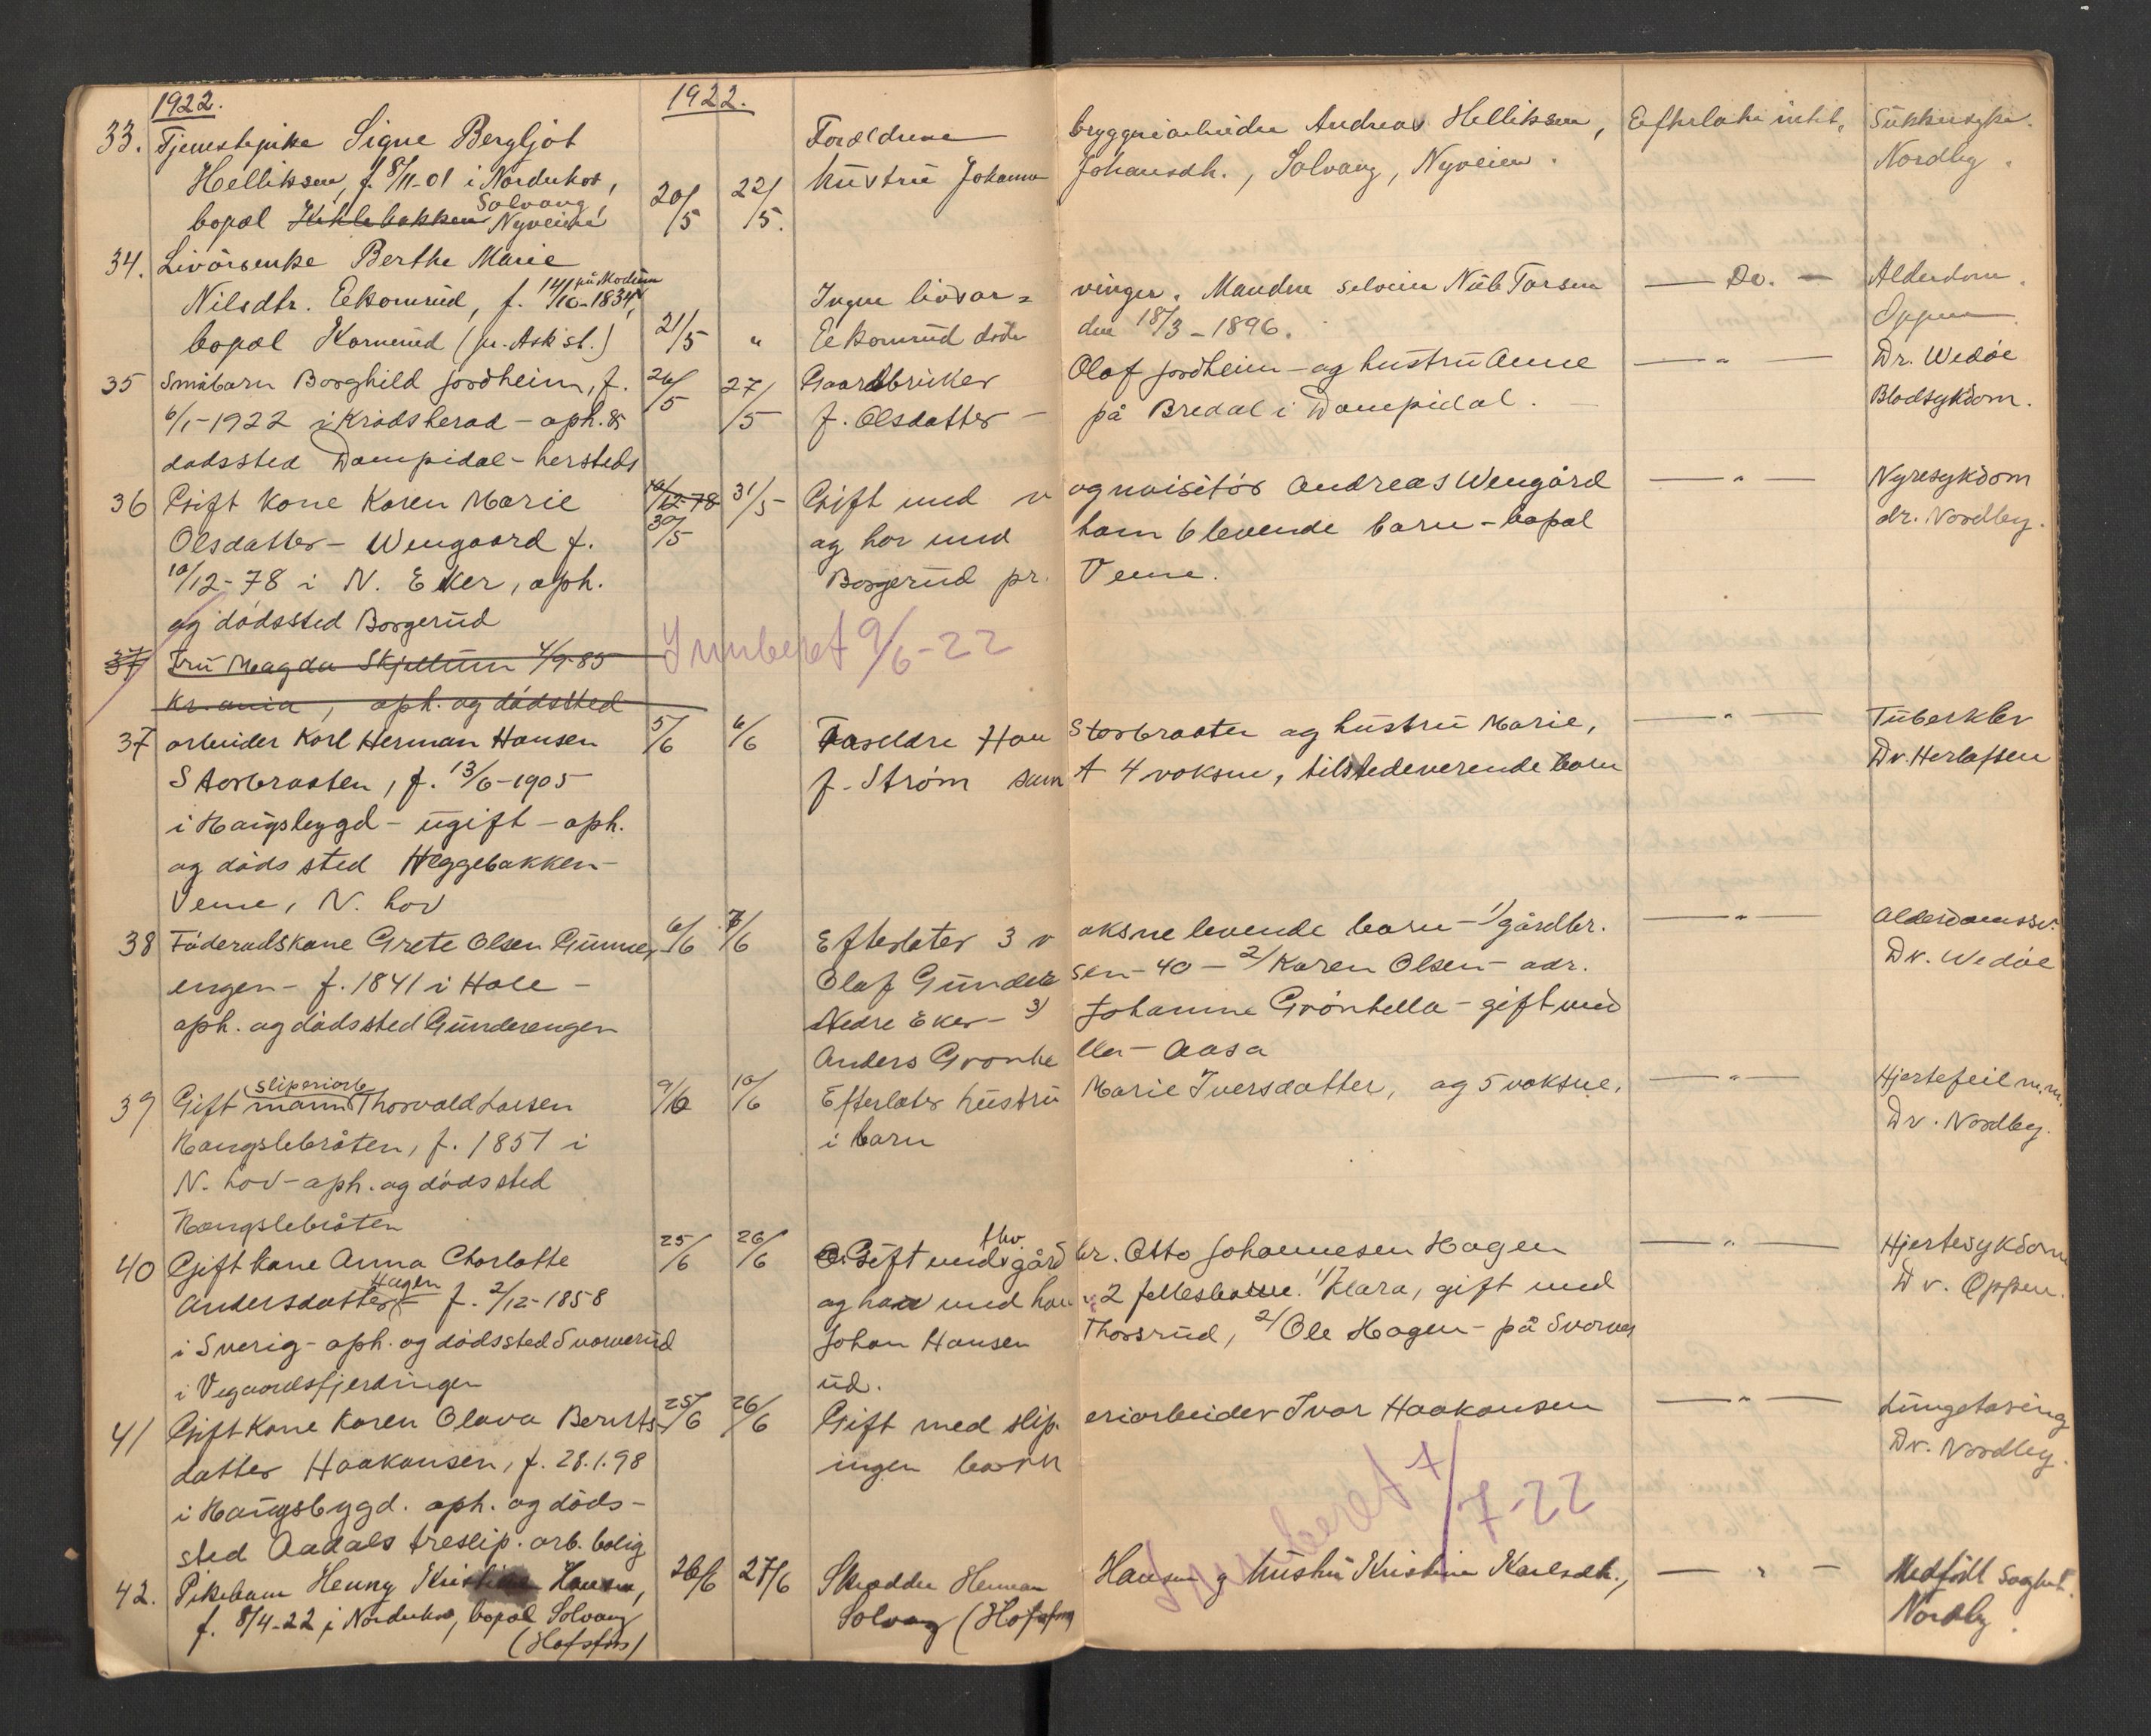 1922.
1922.
33. Tjenestepike Signe Bergljot
Helliksen, f. 8/11-01 i Norderhov,
Solvang,
bopæl Nyveien
20/5 22/5.
Forældrene bryggeriarbeider Andreas Helliksen,
hustru Johanne Johansdh., Solvang, Nyveien.
Efterlater intet.
Sukkersyke.
Nordby.
34. Livørsenke Berthe Marie
på Modum
Nilsdtr. Eekornrud, f. 14/10-1834,
bopæl Kornrud (pr. Ask st.)
21/5 "
Ingen livsar=
vinger. Manden selveier Nils Torsen
Eekornrud døde den 18/3-1896.
— Do. —
Alderdom.
Oppen
35 Småbarn Borghild Jordheim, f.
6/1-1922 i Krødsherad - oph. &
dødssted Dampidal - hersteds
26/5 27/5
Gaardbruker Olaf Jordheim - og hustru Anne
f. Olsdatter - på Bredal i Dampidal.
— " —
Dr. Wedøe
Blodsykdom.
36 Gift kone Karen Marie
Olsdatter - Wengaard f.
10/12-78 i N. Eker, oph.
og dødssted Borgerud
10/12-78
30/5
31/5
Gift med vognvisitør Andreas Wengård
og har med ham 6 levende barn - bopæl
Borgerud pr. Veme.
— " —
Nyresykdom
dr. Nordby.
37 Fru Magda Skjellum 4/9-85
Kr.ania, oph. og dødssted
Innberet 9/6-22
37 arbeider Karl Herman Hansen
Storbraaten, f. 13/6-1905
i Haugsbygd - ugift - oph.
og dødssted Heggebakken -
Veme, N. hov
5/6 6/6
Foreldre Han Storbraaten og hustru Marie,
f. Strøm samt 4 voksne, tilstedeverende barn
— " —
Tuberklér
Dr. Herlofsen
38 Føderadskone Grete Olsen Gunder
engen - f. 1841 i Hole -
oph. og dødssted Gunderengen
6/6 7/6
Efterlater 3 voksne levende barn - 1/ gårdbr.
Olaf Gundersen - 40 - 2/ Karen Olsen - adr.
Nedre Eker - 3/ Johanne Grönhella - gift med
Anders Gronhella - Aasa
— " —
Alderdomssv.
Dr. Wedøe
39 Gift mann Thorvald Larsen
sliperiarb
Haugslebråten, f. 1851 i
N. hov - oph. og dødssted
Haugslebråten
9/6 10/6
Efterlater hustru Marie Iversdatter, og 5 voksne,
i barn
— " —
Hjertefeil m.m.
Dr. Nordby.
40 Gift kone Anna Charlotte
Hagen
Andersdatter - f. 2/12-1858
i Sverig - oph. og dødssted Svarverud
i Vegaardsfjerdingen
25/6 26/6
fhv
Gift med gårdbr. Otto Johannesen Hagen
og har med ham 2 fellesbarn. 1/ Klara, gift med
Johan Hansen Thorsrud, 2/ Ole Hagen - på Svarver
ud.
— " —
Hjertesykdom
Dr. Oppen.
41 Gift Kone Karen Olava Bernts-
datter Haakonsen, f. 28.1.98
i Haugsbygd. oph. og døds-
sted Aadals treslip. arb. bolig
25/6 26/6
Gift med sliperiarbeider Ivar Haakonsen
ingen barn
— " —
Lungetæring
Dr. Nordby.
Innberet 7/7-22
42. Pikebarn Henny Hansen,
f. 8/4-22 i Norderhov, bopæl Solvang
(Hofsfos)
26/6 27/6
Skrædder Herman Hansen og hustru Kristine Karlsdh.,
Solvang (Hofsfos)
— " —
Medfödt Svaghet.
Nordby.